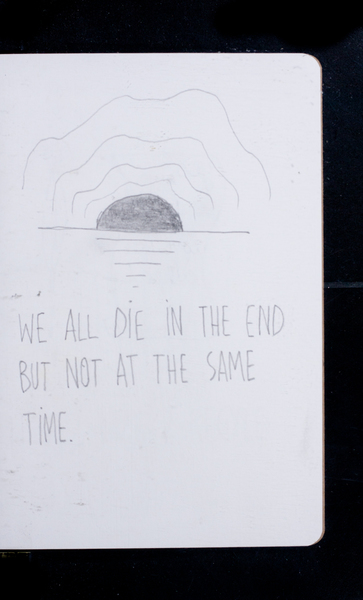 WE ALL DiE iN THE END
BUT NOT AT THE SAME
TiME.